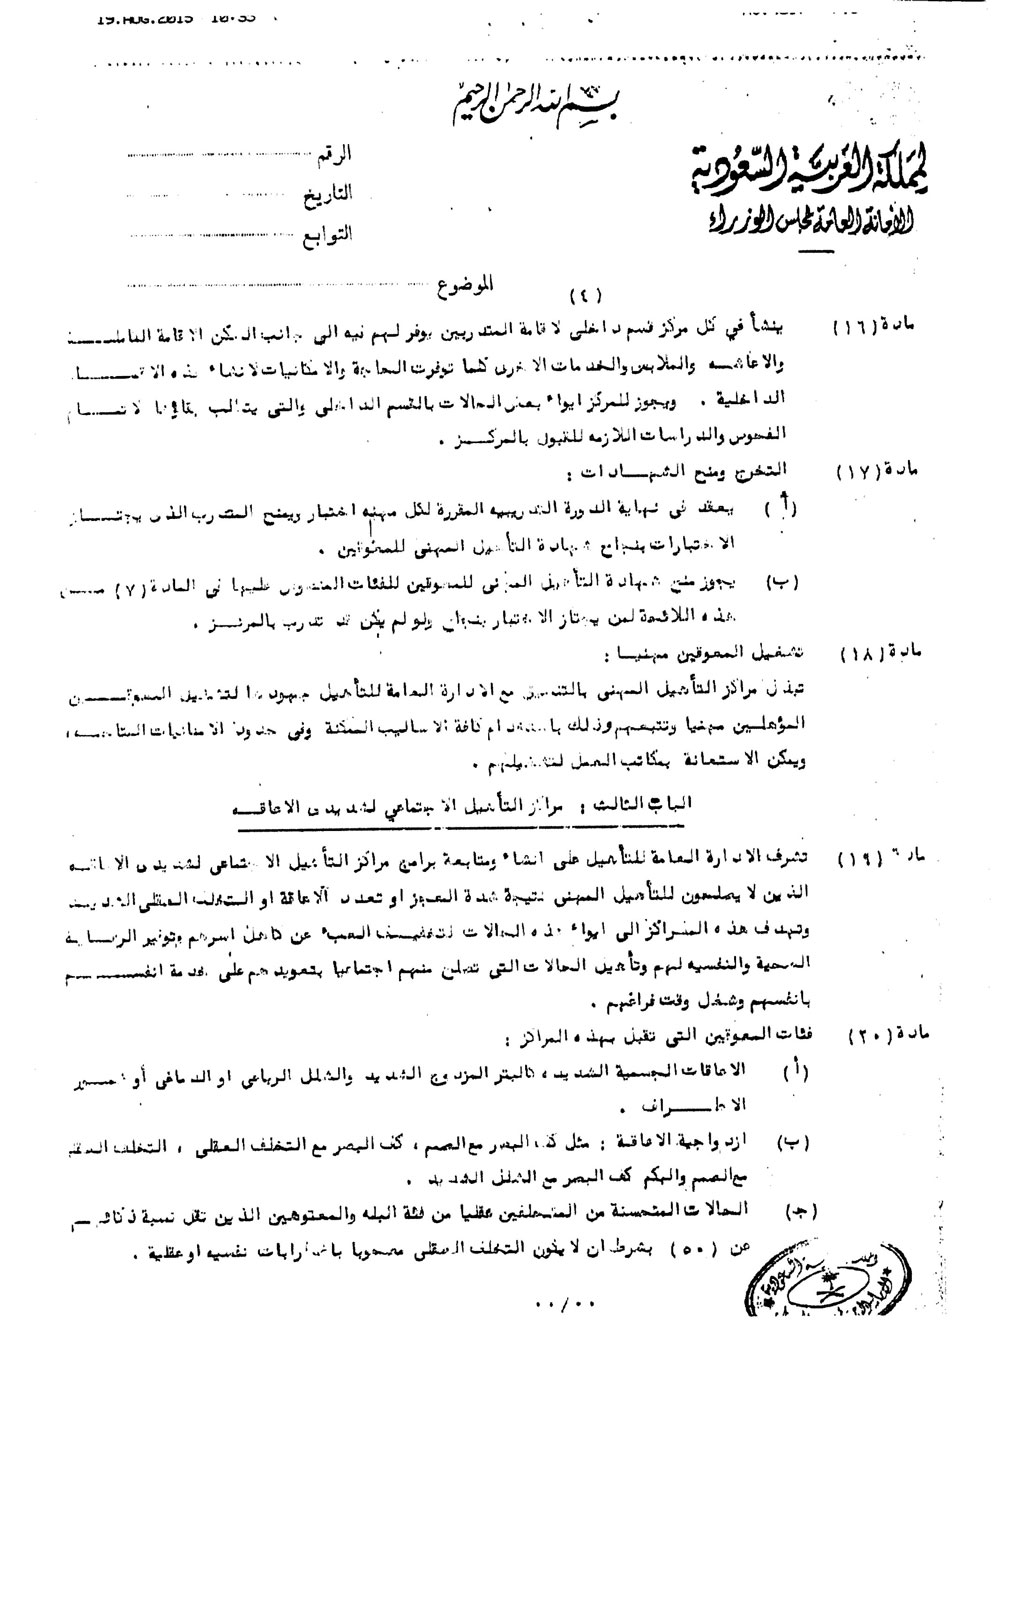 19.AUG.2015 10:33
بسم الله الرحمن الرحيم
المملكة العربية السعودية
الأمانة العامة لمجلس الوزراء
الرقم
التاريخ
التوابع
الموضوع
(٤)
مادة (١٦) ينشأ في كل مركز قسم داخلى لاقامة المتدربين يوفر لهم فيه الى جانب السكن الاقامة الكاملة
والاعاشه والملابس والخدمات الاخرى كلما توفرت الحاجة والامكانيات لانشاء هذه الاقسام
الداخلية . ويجوز للمركز ايواء بعض الحالات بالقسم الداخلى والتى يتطلب بقاؤها لاتمام
الفحوص والدراسات اللازمه للقبول بالمركز .
مادة (١٧) التخرج ومنح الشهادات :
(أ) يعقد فى نهاية الدورة التدريبيه المقررة لكل مهنه اختبار ويمنح المتدرب الذى يجتاز
الاختبارات بنجاح شهادة التأهيل المهنى للمعوقين .
(ب) يجوز منح شهادة التأهيل المهنى للمعوقين للفئات المنصوص عليها فى المادة (٧) من
هذه اللائحة لمن يجتاز الاختبار بنجاح ولو لم يكن قد تدرب بالمركز .
مادة (١٨) تشغيل المعوقين مهنيا :
تبذل مراكز التأهيل المهنى بالتنسيق مع الادارة العامة للتأهيل جهودها لتشغيل المعوقين
المؤهلين مهنيا وتتبعهم وذلك باستخدام كافة الاساليب الممكنة وفى حدود الامكانيات المتاحه ،
ويمكن الاستعانة بمكاتب العمل لتشغيلهم .
الباب الثالث : مراكز التأهيل الاجتماعي لشديدى الاعاقه
مادة (١٩) تشرف الادارة العامة للتأهيل على انشاء ومتابعة برامج مراكز التأهيل الاجتماعى لشديدى الاعاقه
الذين لا يصلحون للتأهيل المهنى نتيجة شدة العجز او تعدد الاعاقة او التخلف العقلى الشديد
وتهدف هذه المراكز الى ايواء هذه الحالات لتخفيف العبء عن كاهل اسرهم وتوفير الرعاية
الصحية والنفسيه لهم وتأهيل الحالات التى تصلح منهم اجتماعيا بتعويدهم على خدمة انفسهم
بانفسهم وشغل وقت فراغهم .
مادة (٢٠) فئات المعوقين التى تقبل بهذه المراكز :
(أ) الاعاقات الجسمية الشديده كالبتر المزدوج الشديد والشلل الرباعى او الدماغى أو
الاطراف .
(ب) ازدواجية الاعاقة : مثل كف البصر مع الصمم ، كف البصر مع التخلف العقلى ، التخلف العقلى
مع الصمم والبكم كف البصر مع الشلل الشديد .
(ج) الحالات المتحسنة من المتخلفين عقليا من فئة البله والمعتوهين الذين تقل نسبة ذكائهم
عن (٥٠) بشرط ان لا يكون التخلف العقلى مصحوبا باضطرابات نفسيه او عقلية .
٠٠/٠٠